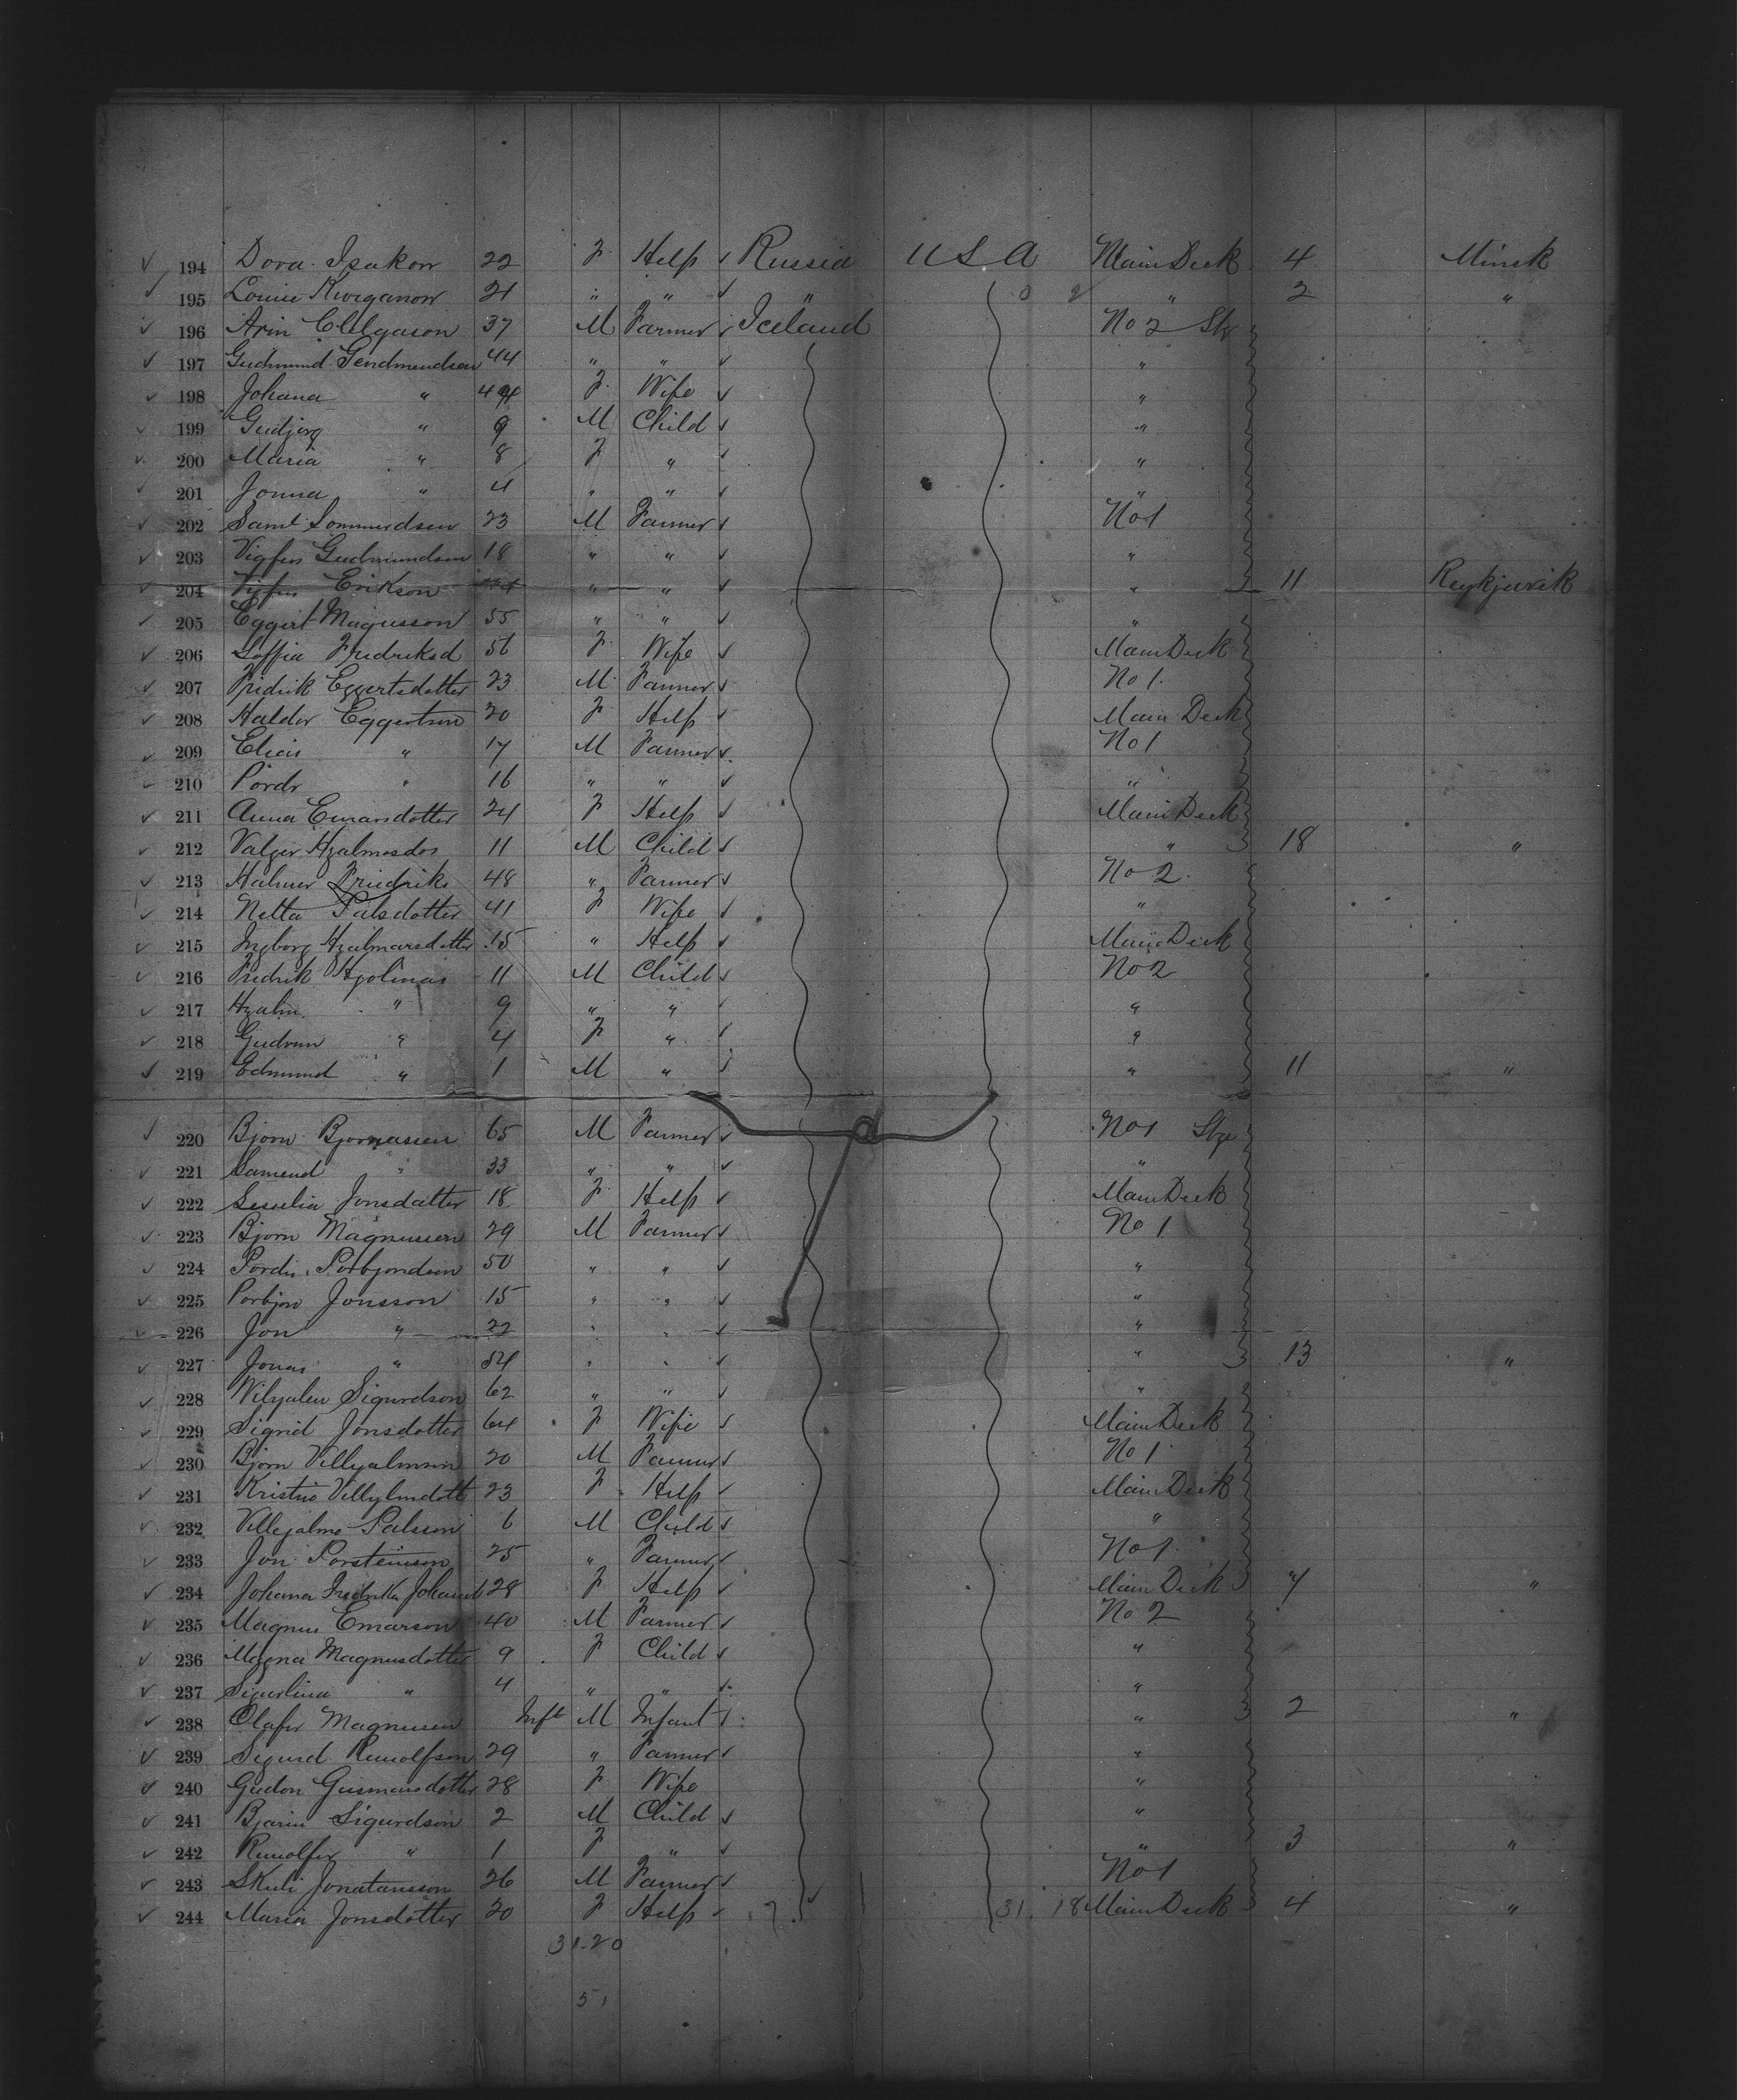 194 Dora Isakow 22 F Help Russia U S A Main Deck 4 Minsk
195 Louise Kworganow 21 " " " 0 2 " 2 "
196 Arin Elelgason 37 M Farmer Iceland No 2 Stg
197 Gudmund Gendmendsen 44 " " "
198 Johana " 44 F Wife "
199 Gudjerg " 9 M Child "
200 Maria " 8 F " "
201 Jonna " 4 " " "
202 Saml Sommerdsen 23 M Farmer No 1
203 Vigfus Gudmundsen 18 " " "
204 Vyfus Erikson " " " 11 Reykjavik
205 Eggert Magusson 55 " " "
206 Soffia Fredriksd 56 F Wife Main Deck
207 Fridrik Eggertsdotter 23 M Farmer No 1.
208 Haldor Eggertson 20 F Help Main Deck
209 Elias " 17 M Farmer No 1
210 Pordr " 16 " " "
211 Anna Emarsdotter 24 F Help Main Deck
212 Valger Hzalmasdos 11 M Child " 18 "
213 Halmer Friedriks 48 " Farmer No 2.
214 Netta Palsdotter 41 F Wife "
215 Ingborg Hzalmarsdotter 15 " Help Main Deck
216 Fredrik Hjolmas 11 M Child No 2
217 Hzalm " 9 " " "
218 Gudrun " 4 F " "
219 Edmund " 1 M " " 11 "
220 Bjorn Bjornasien 65 M Farmer No 1 Stge
221 Samend " 33 " " "
222 Sesselia Jonsdatter 18 F Help Main Deck
223 Bjorn Magnussen 29 M Farmer No 1
224 Pordis Porbjondsen 50 " " "
225 Porbjon Jonsson 15 " " "
226 Jon " 22 " " "
227 Jonas " 54 " " " 13 "
228 Vilyalm Sigurdson 62 " " "
229 Sigrid Jonsdotter 64 F Wife Main Deck
230 Bjorn Villyalmson 20 M Farmer No 1
231 Kristin Villylmdott 23 F Help Main Deck
232 Villejalmo Palsson 6 M Child "
233 Jon Porsteinson 25 " Farmer No 1.
234 Johana Fredrika Johannd 28 F Help Main Deck 7 "
235 Magnus Emarson 40 M Farmer No 2
236 Magna Magnusdotter 9 F Child "
237 Sigurlina " 4 " " "
238 Olafur Magnusen Inft M Infant " 2 "
239 Sigurd Runolfson 29 " Farmer "
240 Gudon Gusmansdotter 28 F Wife "
241 Bjarni Sigurdson 2 M Child "
242 Runolfer " 1 F " " 3 "
243 Skuli Jonatansson 26 M Farmer No 1
244 Maria Jonsdotter 20 F Help 31. 18 Main Deck 4 "
31.20
51